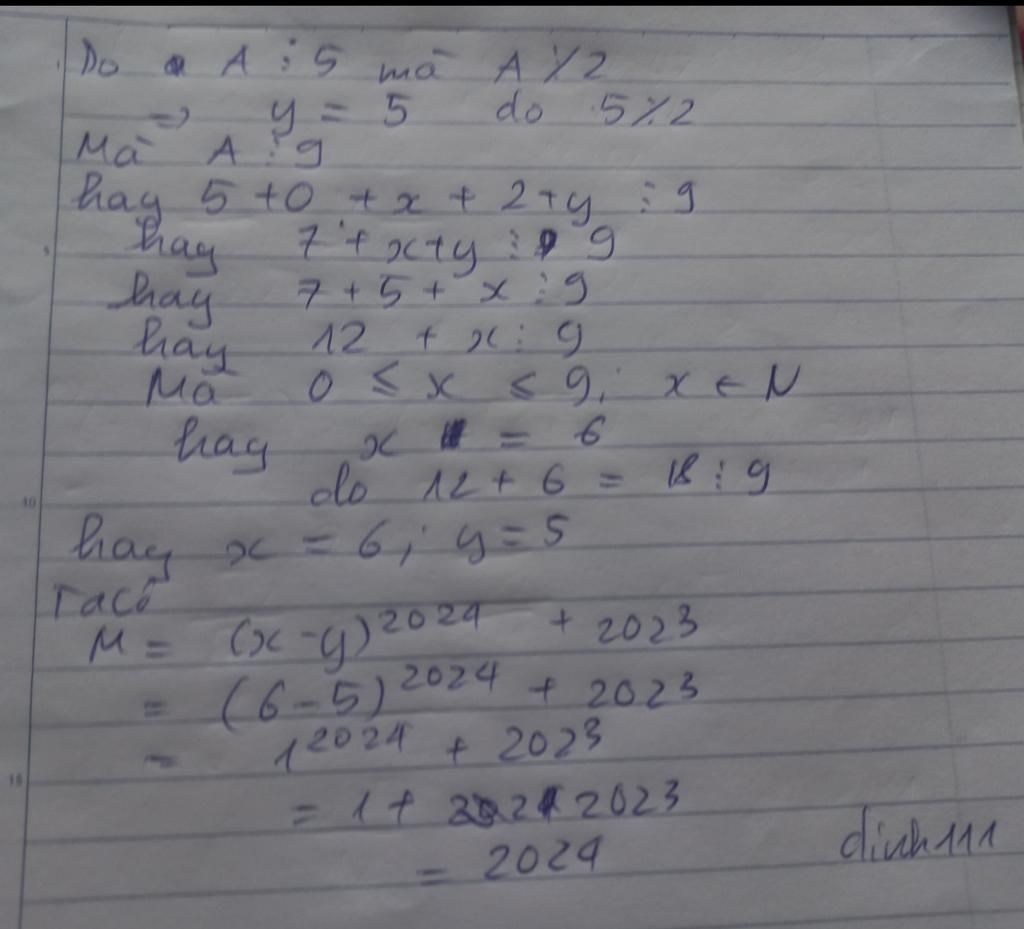 Do A ⋮ 5 mà A ⋮̸ 2
=> y = 5 do 5 ⋮̸ 2
Mà A ⋮ 9
hay 5 + 0 + x + 2 + y ⋮ 9
hay 7 + x + y ⋮ 9
hay 7 + 5 + x ⋮ 9
hay 12 + x ⋮ 9
Mà 0 ≤ x ≤ 9; x ∈ N
hay x = 6
do 12 + 6 = 18 ⋮ 9
hay x = 6; y = 5
Ta có
M = (x - y)^2024 + 2023
= (6 - 5)^2024 + 2023
= 1^2024 + 2023
= 1 + 2023
= 2024
dinh111